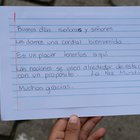 Buenos días señoras y señores
Les damos una cordial bienvenida
Es un placer tenerlos aquí
Las naciones se unen alrededor de esta
con un propósito: La Paz Mundial
Muchas gracias.